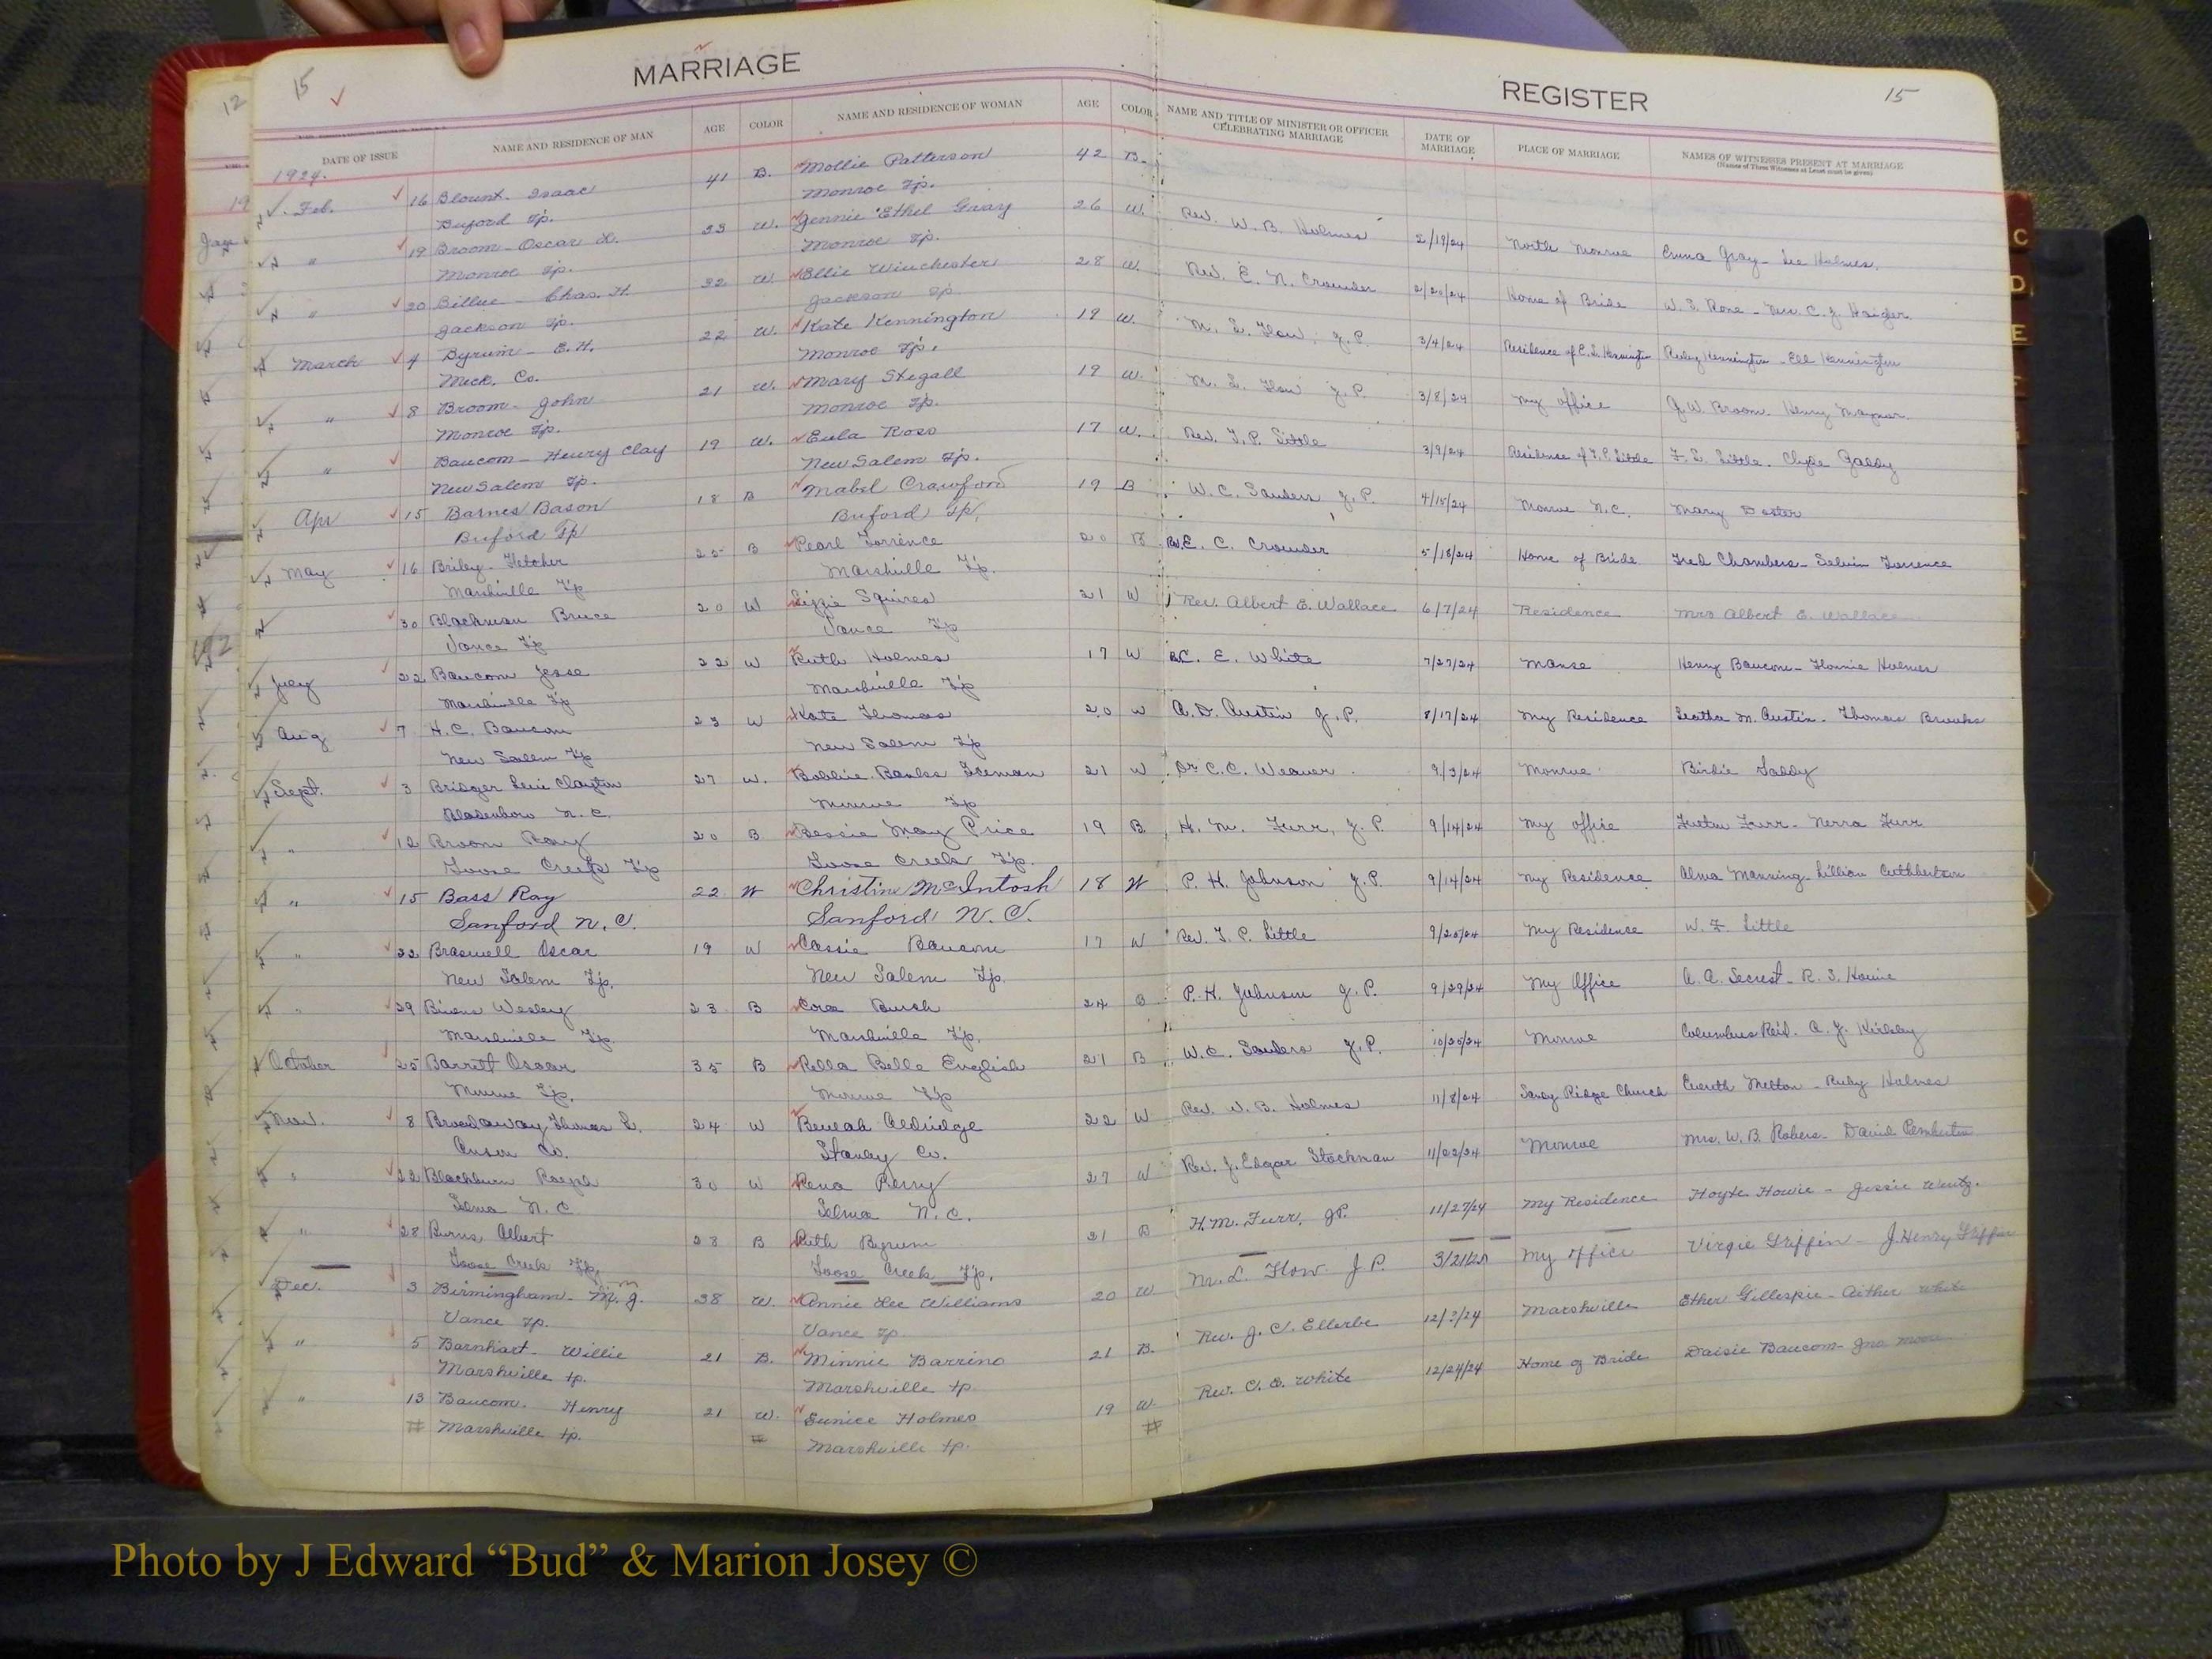 12
15
MARRIAGE
REGISTER
15
DATE OF ISSUE NAME AND RESIDENCE OF MAN AGE COLOR NAME AND RESIDENCE OF WOMAN AGE COLOR NAME AND TITLE OF MINISTER OR OFFICER CELEBRATING MARRIAGE DATE OF MARRIAGE PLACE OF MARRIAGE NAMES OF WITNESSES PRESENT AT MARRIAGE
(Names of Three Witnesses at Least must be given)
1924.
Feb. 16 Blount. Isaac 41 B. Mollie Patterson 42 B.
Buford Tp. Monroe Tp.
" 19 Broom - Oscar 33 W. Jennie Ethel Gray 26 W. Rev. W. B. Holmes 2/19/24 North Monroe Emma Gray - Lee Holmes.
Monroe Tp. Monroe Tp.
" 20 Billue - Chas. H. 32 W. Ellie Winchester 28 W. Rev. E. N. Crowder 2/20/24 Home of Bride
Jackson Tp. Jackson Tp.
March 4 Byrum - E. H. 22 W. Kate Kennington 19 W. M. L. Flow, J. P. 3/4/24 Residence of Kennington Ruby Kennington
Meck. Co. Monroe Tp.
" 8 Broom - John 21 W. Mary Stegall 19 W. M. L. Flow J. P. 3/8/24 My office J. W. Broom. Henry
Monroe Tp. Monroe Tp.
" Baucom - Henry Clay 19 W. Eula Ross 17 W. Rev. T. P. Little 3/9/24 Residence of T. P. Little Little. Clyde Gaddy
New Salem Tp. New Salem Tp.
Apr 15 Barnes Bason 18 B Mabel Crawford 19 B W. C. Sanders J. P. 4/15/24 Monroe N.C. Mary Doster
Buford Tp Buford Tp.
May 16 Briley - Fletcher 25 B Pearl Torrence 20 B E. C. Crowder 5/18/24 Home of Bride Fred Chambers - Selvin Torrence
Marshville Tp Marshville Tp.
30 Blackmon Bruce 20 W Lizzie Squires 21 W Rev. Albert E. Wallace 6/7/24 Residence Mrs Albert E. Wallace
Vance Tp Vance Tp
July 22 Baucom Jesse 22 W Ruth Holmes 17 W C. E. White 7/27/24 Manse Henry Baucom - Holmes
Marshville Tp Marshville Tp
Aug 7 H. C. Baucom 23 W Kate Thomas 20 W A. D. Austin J. P. 8/17/24 My Residence M. Austin - Thomas Brooks
New Salem Tp New Salem Tp
Sept. 3 Clayton 27 W. Bobbie Banks 21 W Dr C. C. Weaver 9/3/24 Monroe Birdie Gaddy
Bladenboro N. C. Monroe Tp
" 12 Broom 20 B Bessie May Price 19 B H. M. Furr, J. P. 9/14/24 My office Furr - Furr
Goose Creek Tp Goose Creek Tp.
" 15 Bass Ray 22 W Christin McIntosh 18 W P. H. Johnson J. P. 9/14/24 My Residence Alma Manning - Lillian Cuthbertson
Sanford N. C. Sanford N. C.
" 22 Braswell Oscar 19 W Cassie Baucom 17 W Rev. T. P. Little My Residence W. F. Little
New Salem Tp. New Salem Tp.
" 29 Bivens Wesley 23 B Cora Bush 24 B P. H. Johnson J. P. 9/29/24 My Office A. A. Secrest - R. S. Howie
Marshville Tp. Marshville Tp.
October 25 Barrett Oscar 35 B Rella Belle English 21 B W. C. Sanders J. P. Monroe Columbus Reid. A. J. Kirkley
Monroe Tp. Monroe Tp
Nov. 8 Broadaway Thomas L. 24 W Beulah Aldridge 22 W Rev. W. B. Holmes 11/8/24 Sandy Ridge Church Melton - Ruby Holmes
Anson Co. Stanly Co.
" 22 Blackburn Ralph 30 W Rena Perry 27 W Rev. J. Edgar Stockman 11/22/24 Monroe Mrs. W. B. David Pemberton
Selma N. C. Selma N. C.
" 28 Burns Albert 28 B Ruth Byrum 21 B H. M. Furr, JP. 11/27/24 My Residence Hoyte Howie - Jessie Wentz.
Goose Creek Tp. Goose Creek Tp.
Dec. 3 Birmingham - M. J. 38 W. Annie Lee Williams 20 W. M. L. Flow J. P. My office Virgie Griffin - J. Henry Griffin
Vance Tp. Vance Tp
" 5 Barnhart - Willie 21 B. Minnie Barrino 21 B. Rev. J. C. Ellerbe 12/ /24 Marshville Ether Gillespie - White
Marshville tp. Marshville tp.
" 13 Baucom. Henry 21 W. Eunice Holmes 19 W. Rev. C. E. White 12/24/24 Home of Bride Daisie Baucom - Jno
# Marshville tp. # Marshville tp. #
C
D
E
Photo by J Edward “Bud” & Marion Josey ©